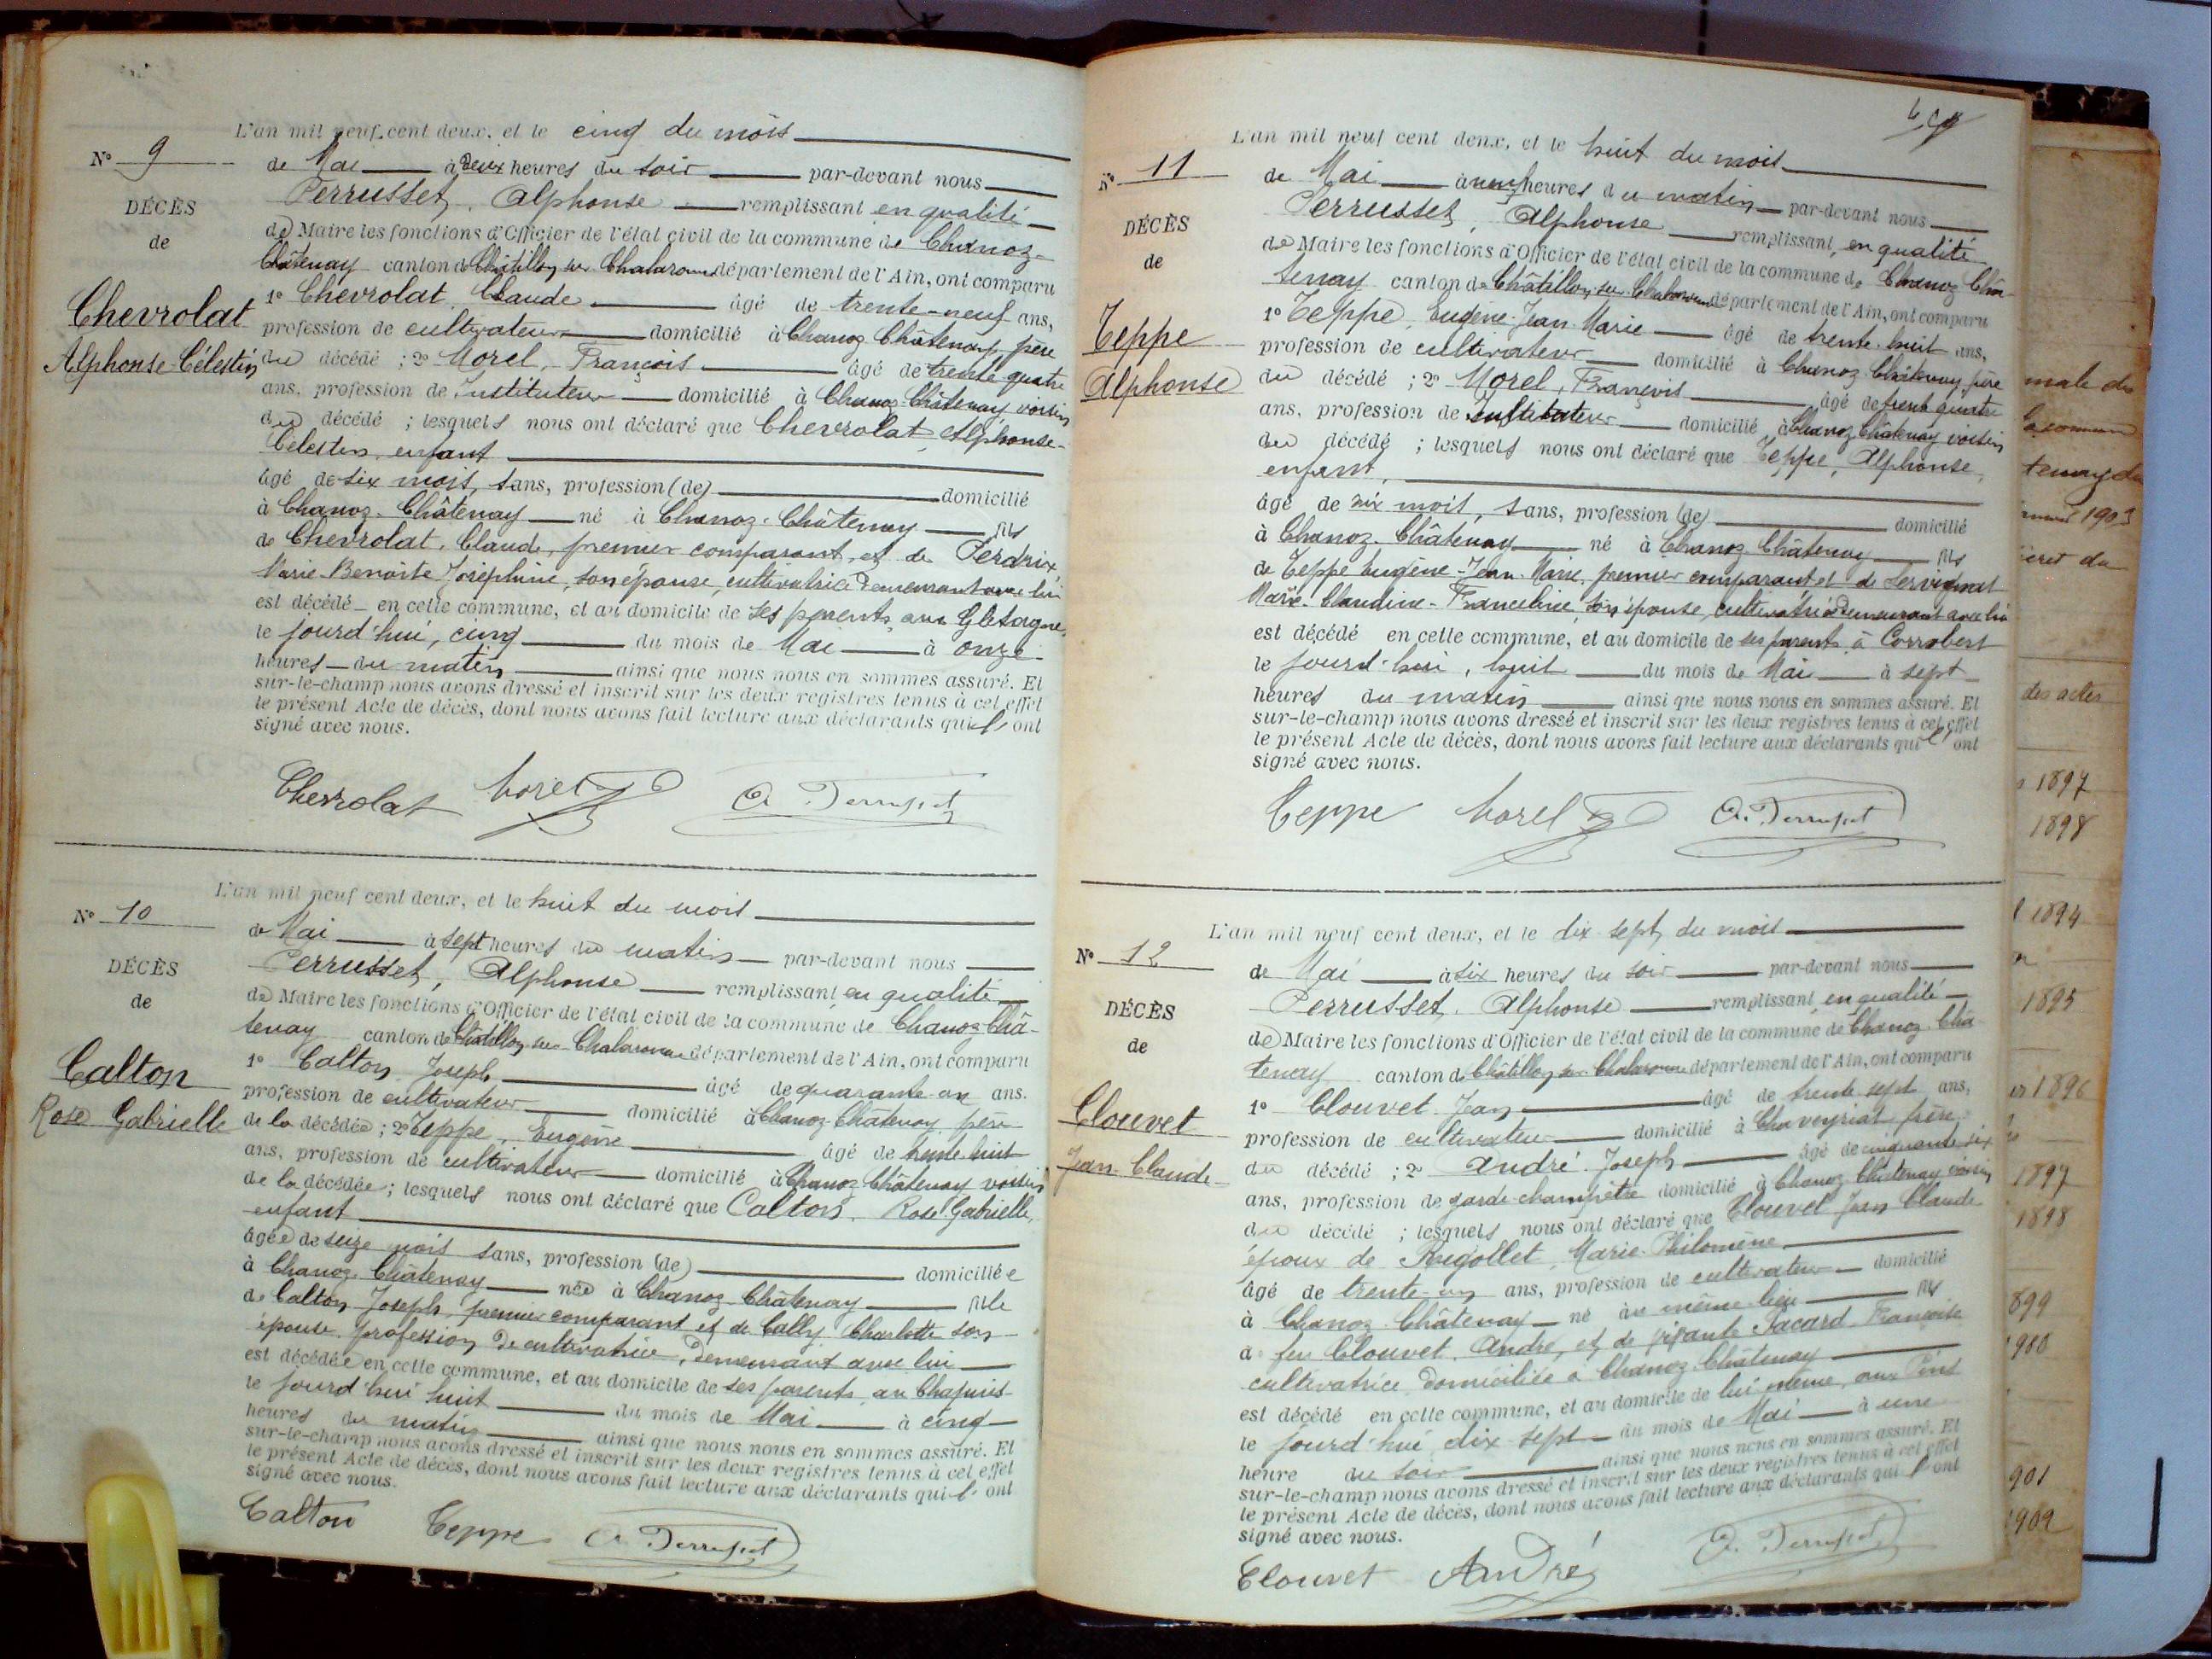 L'an mil neuf cent deux, et le cinq du mois
N° 9
de Mai à deux heures du soir par-devant nous
DÉCÈS
Perrusset, Alphonse remplissant en qualité
de
de Maire les fonctions d'Officier de l'état civil de la commune de Chanoz-
Châtenay canton de Châtillon sur Chalaronne département de l'Ain, ont comparu
Chevrolat
1° Chevrolat, Claude âgé de trente-neuf ans,
profession de cultivateur domicilié à Chanoz Châtenay, père
Alphonse-Célestin
du décédé ; 2° Morel, François âgé de trente quatre
ans, profession de Instituteur domicilié à Chanoz-Châtenay, voisin
du décédé ; lesquels nous ont déclaré que Chevrolat, Alphonse-
Célestin, enfant
âgé de six mois, sans, profession (de) domicilié
à Chanoz-Châtenay né à Chanoz-Châtenay fils
de Chevrolat, Claude, premier comparant, et de Perdrix
Marie-Benoite Joséphine, son épouse, cultivatrice demeurant avec lui
est décédé en cette commune, et au domicile de ses parents, aux
le jourd'hui, cinq du mois de Mai à onze
heures du matin ainsi que nous nous en sommes assuré. Et
sur-le-champ nous avons dressé et inscrit sur les deux registres tenus à cet effet
le présent Acte de décès, dont nous avons fait lecture aux déclarants qui l'ont
signé avec nous.
Chevrolat Morel A. Perrusset
L'an mil neuf cent deux, et le huit du mois
N° 10
de Mai à sept heures du matin par-devant nous
DÉCÈS
Perrusset, Alphonse remplissant en qualité
de
de Maire les fonctions d'Officier de l'état civil de la commune de Chanoz-Châ-
tenay canton de Châtillon sur Chalaronne département de l'Ain, ont comparu
Calton
1° Calton Joseph âgé de quarante un ans.
profession de cultivateur domicilié à Chanoz Châtenay, père
Rose Gabrielle
de la décédée ; 2° Teppe, Eugène âgé de trente huit
ans, profession de cultivateur domicilié à Chanoz Châtenay voisin
de la décédée ; lesquels nous ont déclaré que Calton, Rose Gabrielle,
enfant
âgée de seize mois sans, profession (de) domiciliée
à Chanoz-Châtenay née à Chanoz-Châtenay fille
de Calton Joseph, premier comparant et de Cally Charlotte son
épouse profession de cultivatrice, demeurant avec lui
est décédée en cette commune, et au domicile de ses parents, au Chapuis
le jourd'hui huit du mois de Mai à cinq
heures du matin ainsi que nous nous en sommes assuré. Et
sur-le-champ nous avons dressé et inscrit sur les deux registres tenus à cet effet
le présent Acte de décès, dont nous avons fait lecture aux déclarants qui l'ont
signé avec nous.
Calton Teppe A. Perrusset
L'an mil neuf cent deux, et le huit du mois
N° 11
de Mai à neuf heures du matin par-devant nous
DÉCÈS
Perrusset, Alphonse remplissant, en qualité
de
de Maire les fonctions d'Officier de l'état civil de la commune de Chanoz Châ-
tenay canton de Châtillon sur Chalaronne département de l'Ain, ont comparu
Teppe
1° Teppe, Eugène-Jean-Marie âgé de trente-huit ans,
profession de cultivateur domicilié à Chanoz Châtenay, père
Alphonse
du décédé ; 2° Morel, François âgé de trente quatre
ans, profession de Instituteur domicilié à Chanoz Châtenay voisin
du décédé ; lesquels nous ont déclaré que Teppe, Alphonse,
enfant,
âgé de six mois, sans, profession (de) domicilié
à Chanoz-Châtenay né à Chanoz Châtenay fils
de Teppe Eugène-Jean-Marie, premier comparant et de Servignat
Marie-Claudine-Franceline, son épouse, cultivatrice demeurant avec lui
est décédé en cette commune, et au domicile de ses parents, à Corrobert
le jourd'hui, huit du mois de Mai à sept
heures du matin ainsi que nous nous en sommes assuré. Et
sur-le-champ nous avons dressé et inscrit sur les deux registres tenus à cet effet
le présent Acte de décès, dont nous avons fait lecture aux déclarants qui l'ont
signé avec nous.
Teppe Morel A. Perrusset
L'an mil neuf cent deux, et le dix sept du mois
N° 12
de Mai à six heures du soir par-devant nous
DÉCÈS
Perrusset, Alphonse remplissant en qualité
de
de Maire les fonctions d'Officier de l'état civil de la commune de Chanoz-Châ
tenay canton de Châtillon sur Chalaronne département de l'Ain, ont comparu
Clouvet
1° Clouvet Jean âgé de trente sept ans,
profession de cultivateur domicilié à Chaveyriat frère
Jean-Claude
du décédé ; 2° André Joseph âgé de cinquante six
ans, profession de garde-champêtre domicilié à Chanoz-Châtenay voisin
du décédé ; lesquels nous ont déclaré que Clouvet Jean Claude
époux de Rugollet, Marie-Philomène
âgé de trente-un ans, profession de cultivateur domicilié
à Chanoz-Châtenay né au même lieu fils
de feu Clouvet, André, et de vivante Jacard Françoise
cultivatrice domiciliée à Chanoz-Châtenay
est décédé en cette commune, et au domicile de lui même, aux Pins
le jourd'hui dix sept du mois de Mai à une
heure du soir ainsi que nous nous en sommes assuré. Et
sur-le-champ nous avons dressé et inscrit sur les deux registres tenus à cet effet
le présent Acte de décès, dont nous avons fait lecture aux déclarants qui l'ont
signé avec nous.
Clouvet André A. Perrusset
1903
des actes
1897
1898
1894
1895
1896
1897
1898
899
900
901
1902